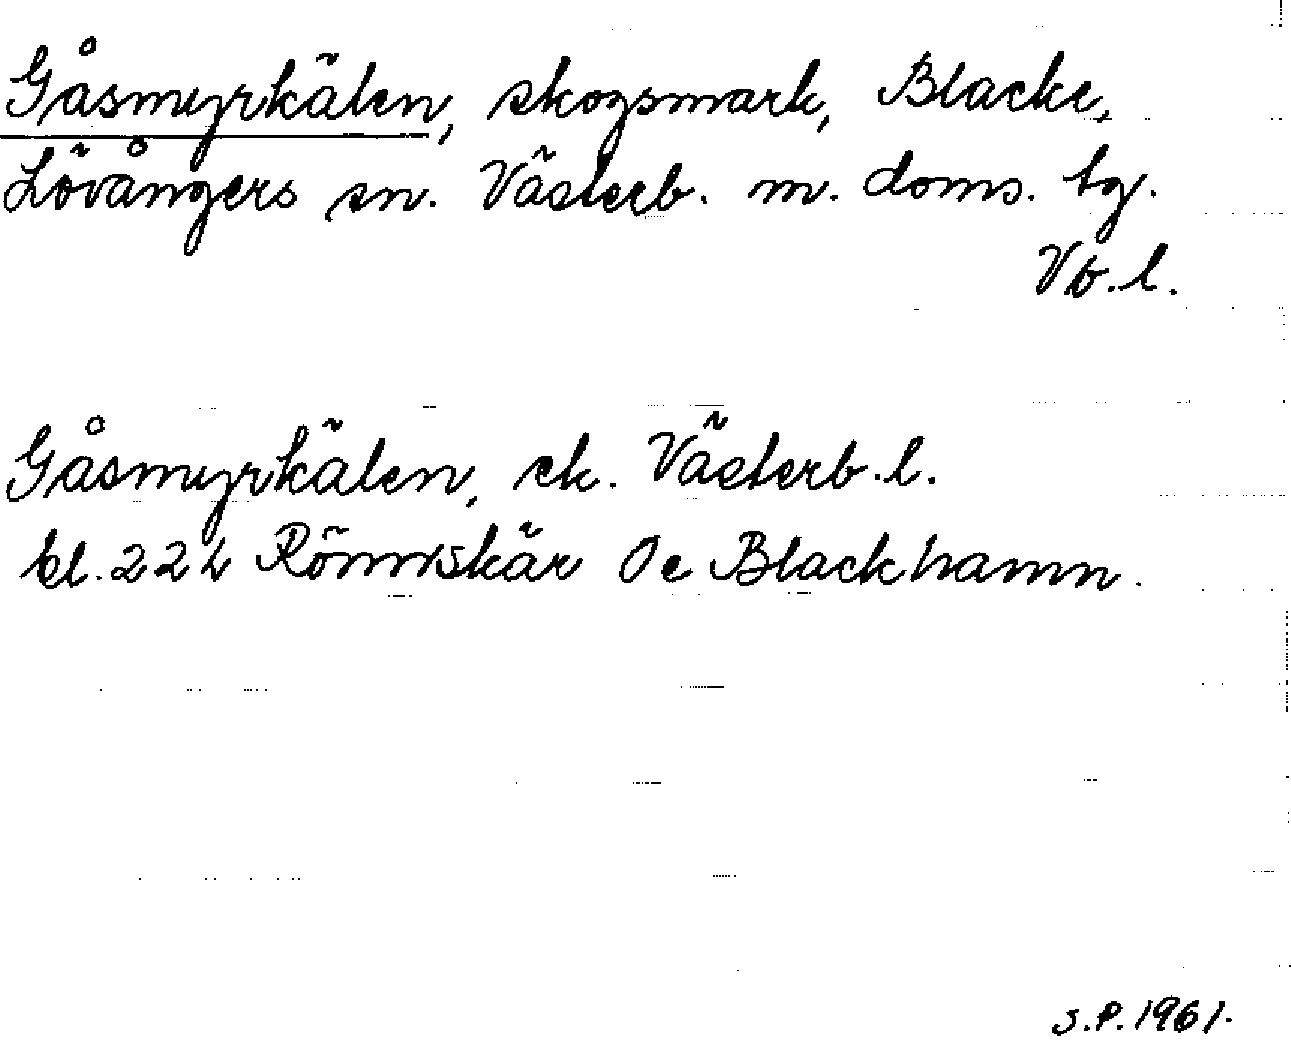 Gåsmyrkälen, skogsmark, Blacke,
Lövångers sn. Västerb. m. doms. tg.
Vb. l.
Gåsmyrkälen, ek. Västerb. l.
bl. 22 h Rönnskär Oc Blackhamn.
S.P. 1961.